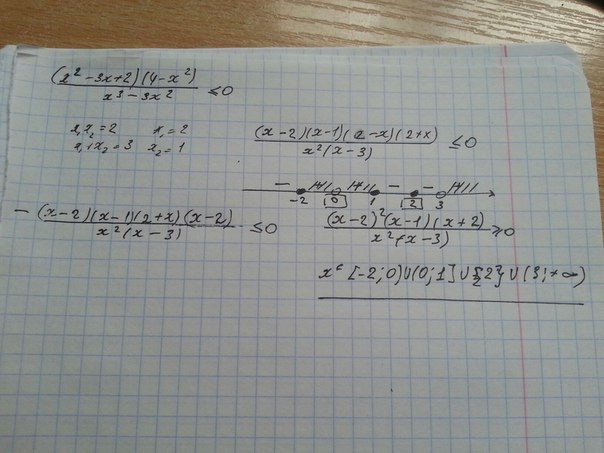 (x² - 3x + 2)(4 - x²) / x³ - 3x² ≤ 0
x₁x₂ = 2 x₁ = 2
x₁ + x₂ = 3 x₂ = 1
(x-2)(x-1)(2-x)(2+x) / x²(x-3) ≤ 0
- + + - - +
-2 0 1 2 3
- (x-2)(x-1)(2+x)(x-2) / x²(x-3) ≤ 0
(x-2)²(x-1)(x+2) / x²(x-3) ≥ 0
x ∈ [-2; 0) ∪ (0; 1] ∪ {2} ∪ (3; +∞)